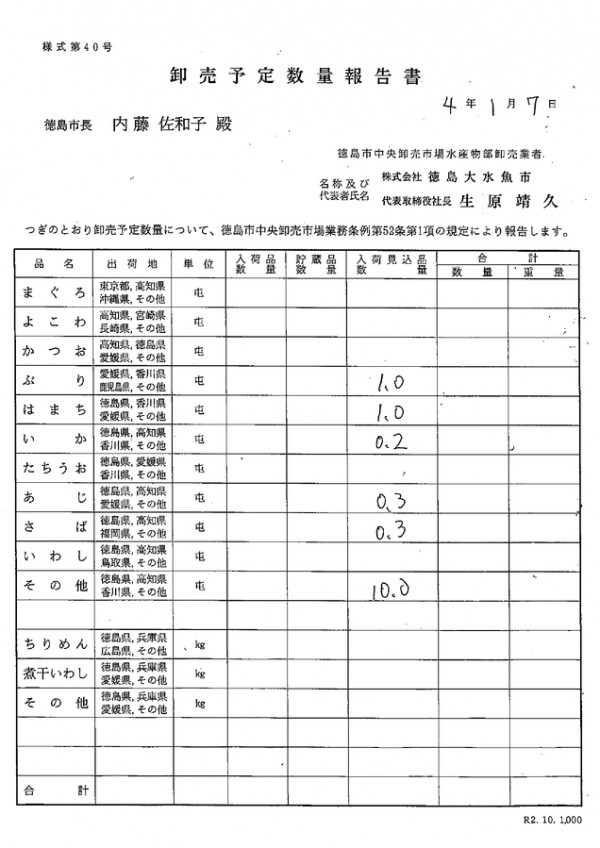 様式第40号
卸売予定数量報告書
4年1月7日
徳島市長 内藤 佐和子 殿
徳島市中央卸売市場水産物部卸売業者
名称及び 株式会社 徳島大水魚市
代表者氏名 代表取締役社長 生原靖久
つぎのとおり卸売予定数量について、徳島市中央卸売市場業務条例第52条第1項の規定により報告します。
品名 出荷地 単位 入荷品数量 貯蔵品数量 入荷見込品数量 合計
数量 重量
まぐろ 東京都, 高知県 沖縄県, その他 屯
よこわ 高知県, 宮崎県 長崎県, その他 屯
かつお 高知県, 徳島県 愛媛県, その他 屯
ぶり 愛媛県, 香川県 鹿児島県, その他 屯 1.0
はまち 徳島県, 香川県 愛媛県, その他 屯 1.0
いか 徳島県, 高知県 香川県, その他 屯 0.2
たちうお 徳島県, 愛媛県 香川県, その他 屯
あじ 徳島県, 高知県 愛媛県, その他 屯 0.3
さば 徳島県, 高知県 福岡県, その他 屯 0.3
いわし 徳島県, 高知県 鳥取県, その他 屯
その他 徳島県, 高知県 香川県, その他 屯 10.0
ちりめん 徳島県, 兵庫県 広島県, その他 kg
煮干いわし 徳島県, 兵庫県 愛媛県, その他 kg
その他 徳島県, 兵庫県 愛媛県, その他 kg
合計
R2. 10. 1,000